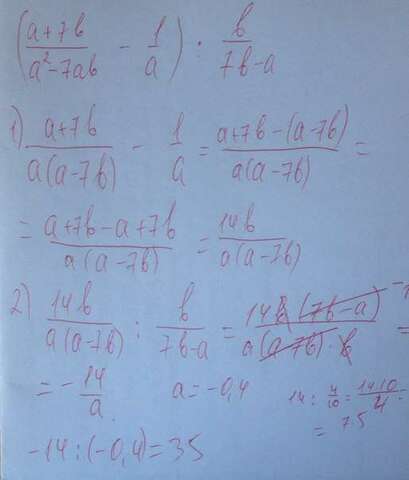 ((a+7b)/(a²-7ab) - 1/a) : b/(7b-a)
1) (a+7b)/(a(a-7b)) - 1/a = (a+7b-(a-7b))/(a(a-7b)) =
= (a+7b-a+7b)/(a(a-7b)) = 14b/(a(a-7b))
2) 14b/(a(a-7b)) : b/(7b-a) = (14b(7b-a))/(a(a-7b)·b) -1 =
= -14/a a=-0,4 14 : 4/10 = 14·10/4 =
= 7·5
-14:(-0,4)=35